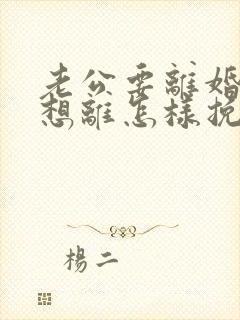 老公要離婚
想離怎樣挽
楊二